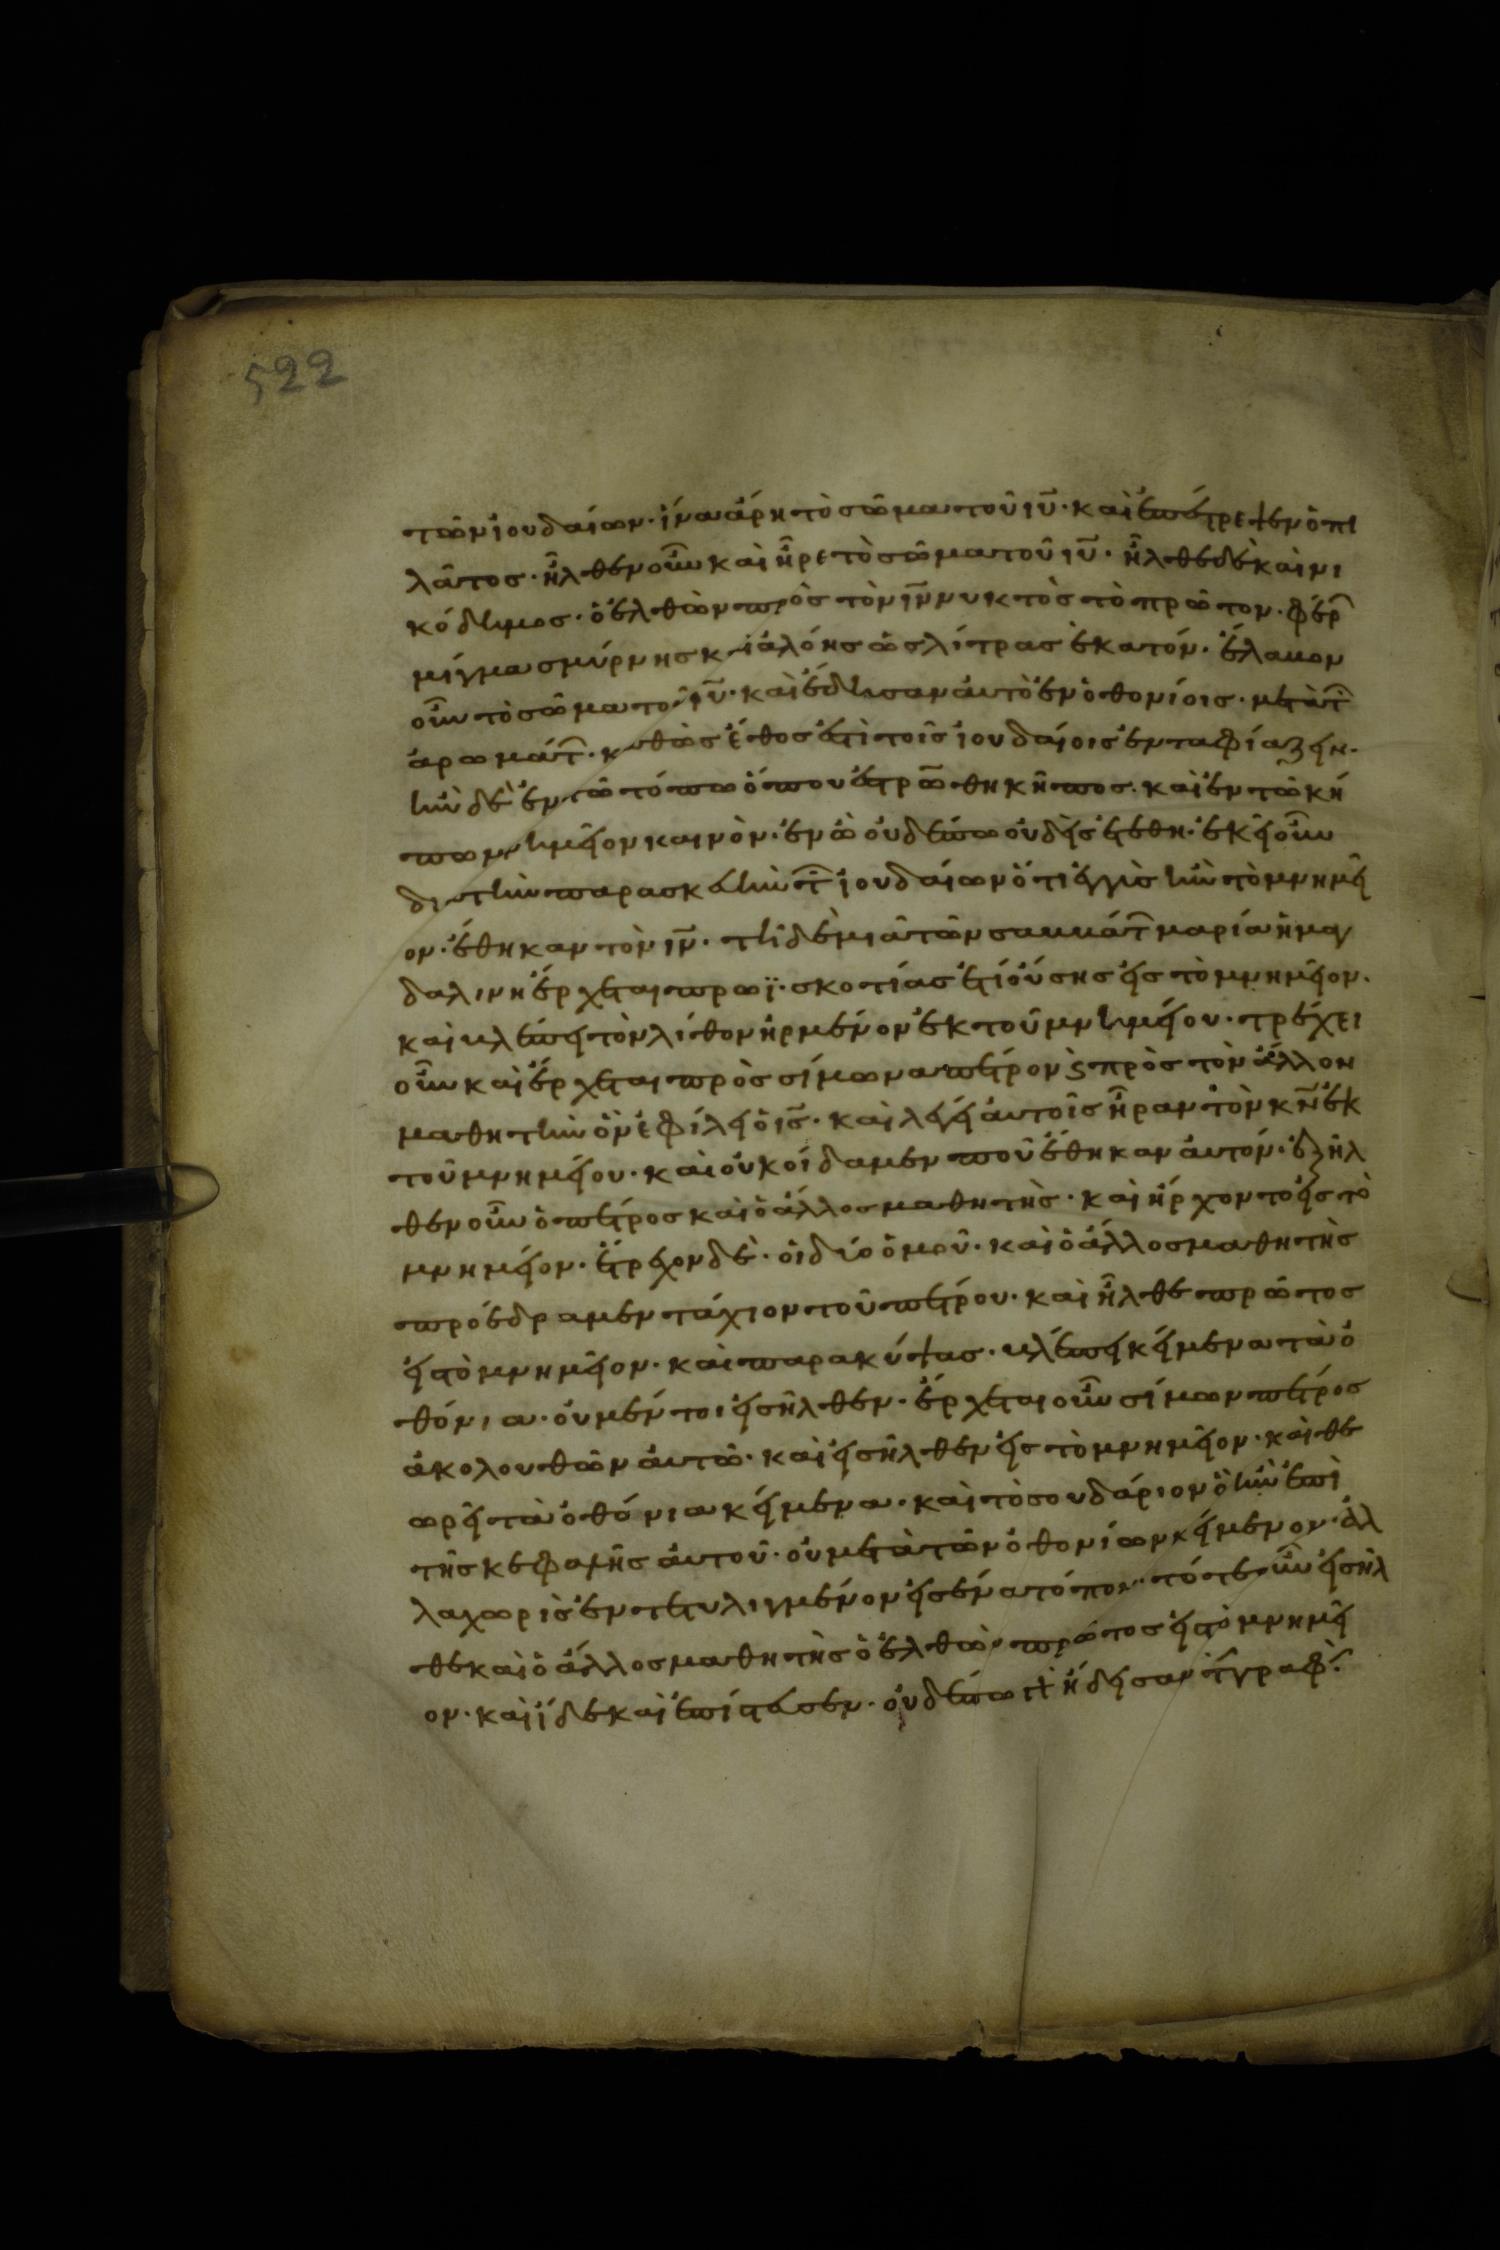 522
τῶν ἰουδαίων· ἵνα ἄρη τὸ σῶμα τοῦ ιυ̅· καὶ ἐπέτρεψεν ὁ πι
λᾶτος· ἦλθεν οὖν καὶ ἦρε τὸ σῶμα τοῦ ιυ̅· ἦλθε δὲ καὶ νι
κόδημος· ὁ ἐλθὼν πρὸς τὸν ιν̅ νυκτὸς τὸ πρῶτον· φέρ̅
μίγμα σμύρνης καὶ ἀλόης ὡς λίτρας ἑκατόν· ἔλαβον
οὖν τὸ σῶμα τοῦ ιυ̅· καὶ ἔδησαν ἀυτὸ ἐν ὀθονίοις· μετὰ τ̅
ἀρωμάτ̅· καθὼς ἔθος ἐστὶ τοῖς ἰουδαίοις ἐνταφιάζειν·
ἦν δὲ ἐν τῶ τόπω ὅπου ἐστρω̅θη κῆπος· καὶ ἐν τῶ κή
πω μνημεῖον καινὸν· ἐν ὧ οὐδέπω οὐδεὶς ἐτέθη· ἐκεῖ οὖν
δια τὴν παρασκευὴν τ̅ ἰουδαίων ὅτι ἐγγὺς ἦν τὸ μνημεῖ
ον· ἔθηκαν τὸν ιν̅· τῆ δὲ μιᾶ τῶν σαββάτ̅ μαρία ἡ μαγ
δαλινη ἔρχεται πρωϊ· σκοτίας ἔτι οὔσης εἰς τὸ μνημεῖον·
καὶ βλέπει τὸν λίθον ἠρμένον ἐκ τοῦ μνημείου· τρέχει
οὖν καὶ ἔρχεται πρὸς σίμωνα πέτρον ϗ πρὸς τὸν ἄλλον
μαθητὴν ὃν ἐφίλει ὁ ις̅· καὶ λέγει ἀυτοῖς ἦραν τὸν κν̅ ἐκ
τοῦ μνημείου· καὶ οὐκ οἴδαμεν ποῦ ἔθηκαν ἀυτόν· ἐξῆλ
θεν οὖν ὁ πέτρος καὶ ὁ ἄλλος μαθητὴς· καὶ ἤρχοντο εἰς τὸ
μνημείον· ἔτρεχον δὲ· οἱ δύο ὁμοῦ· καὶ ὁ ἄλλος μαθητὴς
προέδραμεν τάχιον τοῦ πέτρου· καὶ ἦλθε πρῶτος
εἰς τὸ μνημεῖον· καὶ παρακύψας· βλέπει κείμενα τὰ ὀ
θόνια· οὐ μέντοι εἰσῆλθεν· ἔρχεται οὖν σίμων πέτρος
ἀκολουθῶν ἀυτῶ· καὶ εἰσῆλθεν εἰς τὸ μνημεῖον· καὶ θε
ωρεῖ τὰ ὀθόνια κείμενα· καὶ τὸ σουδάριον ὃ ἦν ἐπὶ
τῆς κεφαλῆς ἀυτοῦ· οὐ μετὰ τῶν ὀθονίων κείμενον· ἀλ
λα χωρὶς ἐντετυλιγμένον εἰς ἕνα τόπον· τότε οὖν εἰσῆλ
θε καὶ ὁ ἄλλος μαθητὴς ὁ ἐλθὼν πρῶτος εἰς τὸ μνημεῖ
ον· καὶ ἴδε καὶ ἐπίστευσεν· οὐδέπω γὰρ ἤδεισαν τ̅ γραφ̅